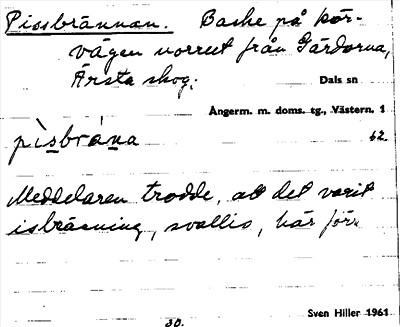 Pissbrännan. Backe på kör-
vägen norrut från Gärdorna,
Ärsta skog.
Dals sn
Ångerm. m. doms. tg., Västern. 1
pìsbrána 62.
Meddelaren trodde, att det varit
isbräsning, svallis, här förr
Sven Hiller 1961
30.